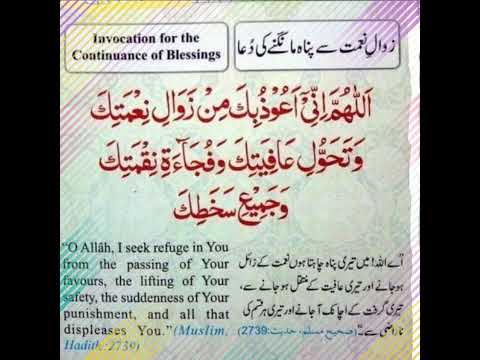 Invocation for the
Continuance of Blessings
زوالِ نعمت سے پناہ مانگنے کی دُعا
اَللّٰهُمَّ اِنِّیْۤ اَعُوْذُبِكَ مِنْ زَوَالِ نِعْمَتِكَ
وَتَحَوُّلِ عَافِيَتِكَ وَفُجَآءَةِ نِقْمَتِكَ
وَجَمِيْعِ سَخَطِكَ
“O Allâh, I seek refuge in You
from the passing of Your
favours, the lifting of Your
safety, the suddenness of Your
punishment, and all that
displeases You.” (Muslim,
Hadith:2739)
اے اللہ! میں تیری پناہ چاہتا ہوں نعمت کے زائل
ہوجانے اور تیری عافیت کے منتقل ہوجانے سے،
تیری گرفت کے اچانک آجانے اور تیری ہر قسم کی
ناراضی سے۔“ (صحیح مسلم، حدیث:2739)